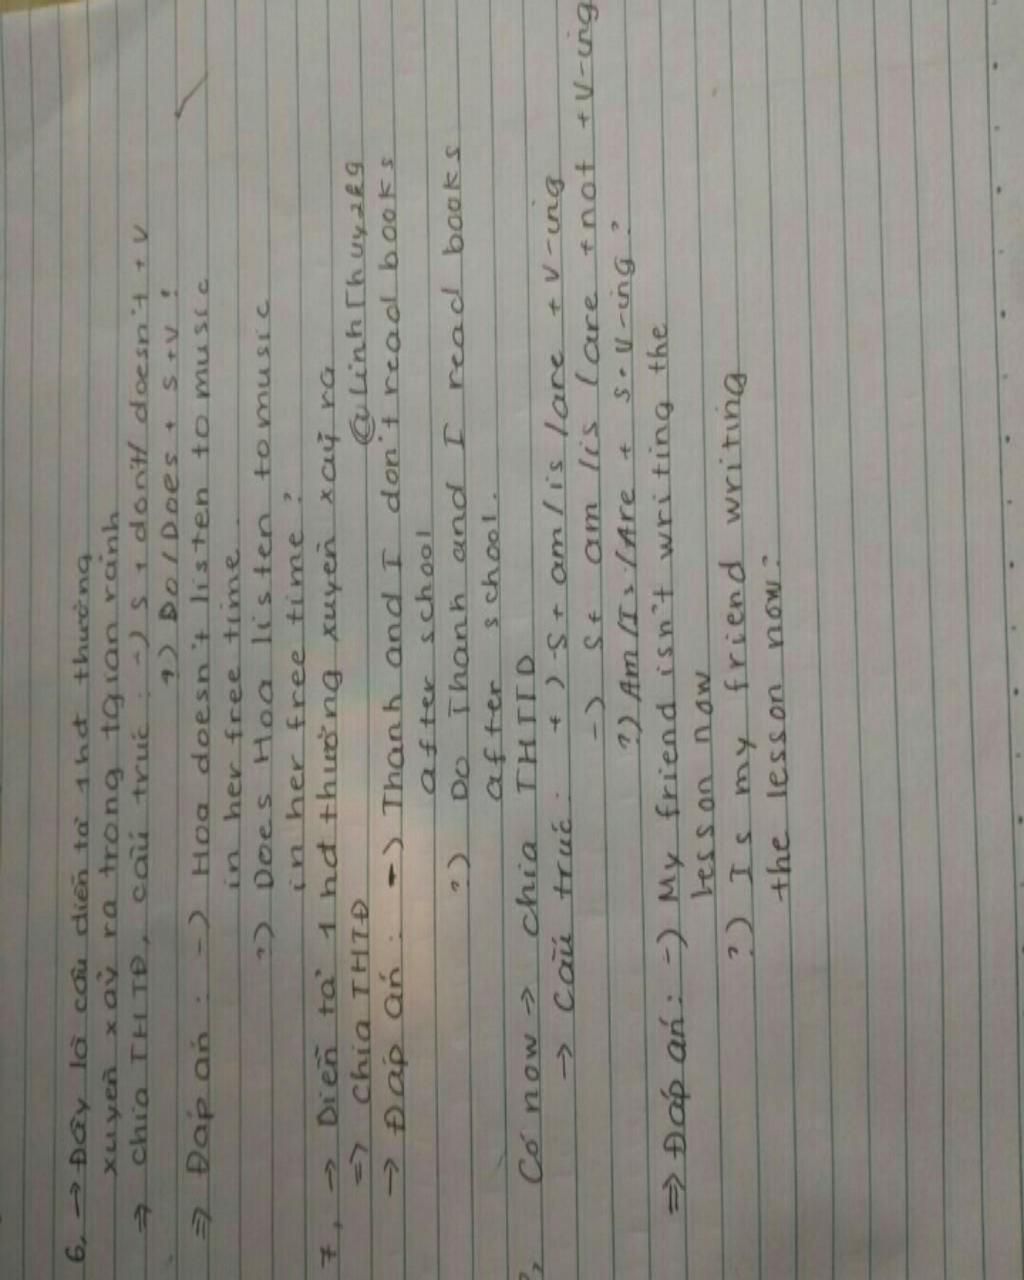 6, → Đây là câu diễn tả 1 hđ thường
xuyên xảy ra trong tgian rảnh
⇒ chia THTĐ, cấu trúc : -) S + don't/ doesn't + V
?) Do / Does + S + V ?
⇒ Đáp án : -) Hoa doesn't listen to music
in her free time.
?) Does Hoa listen to music
in her free time?
7, → Diễn tả 1 hđ thường xuyên xảy ra
⇒ Chia THTĐ @LinhThuy2k9
→ Đáp án : -) Thanh and I don't read books
after school
?) Do Thanh and I read books
after school.
Có now → chia THTTD
→ Cấu trúc : +) S + am / is / are + V-ing
-) S + am / is / are + not + V-ing
?) Am / Is / Are + S + V-ing ?
⇒ Đáp án : -) My friend isn't writing the
lesson now
?) Is my friend writing
the lesson now?